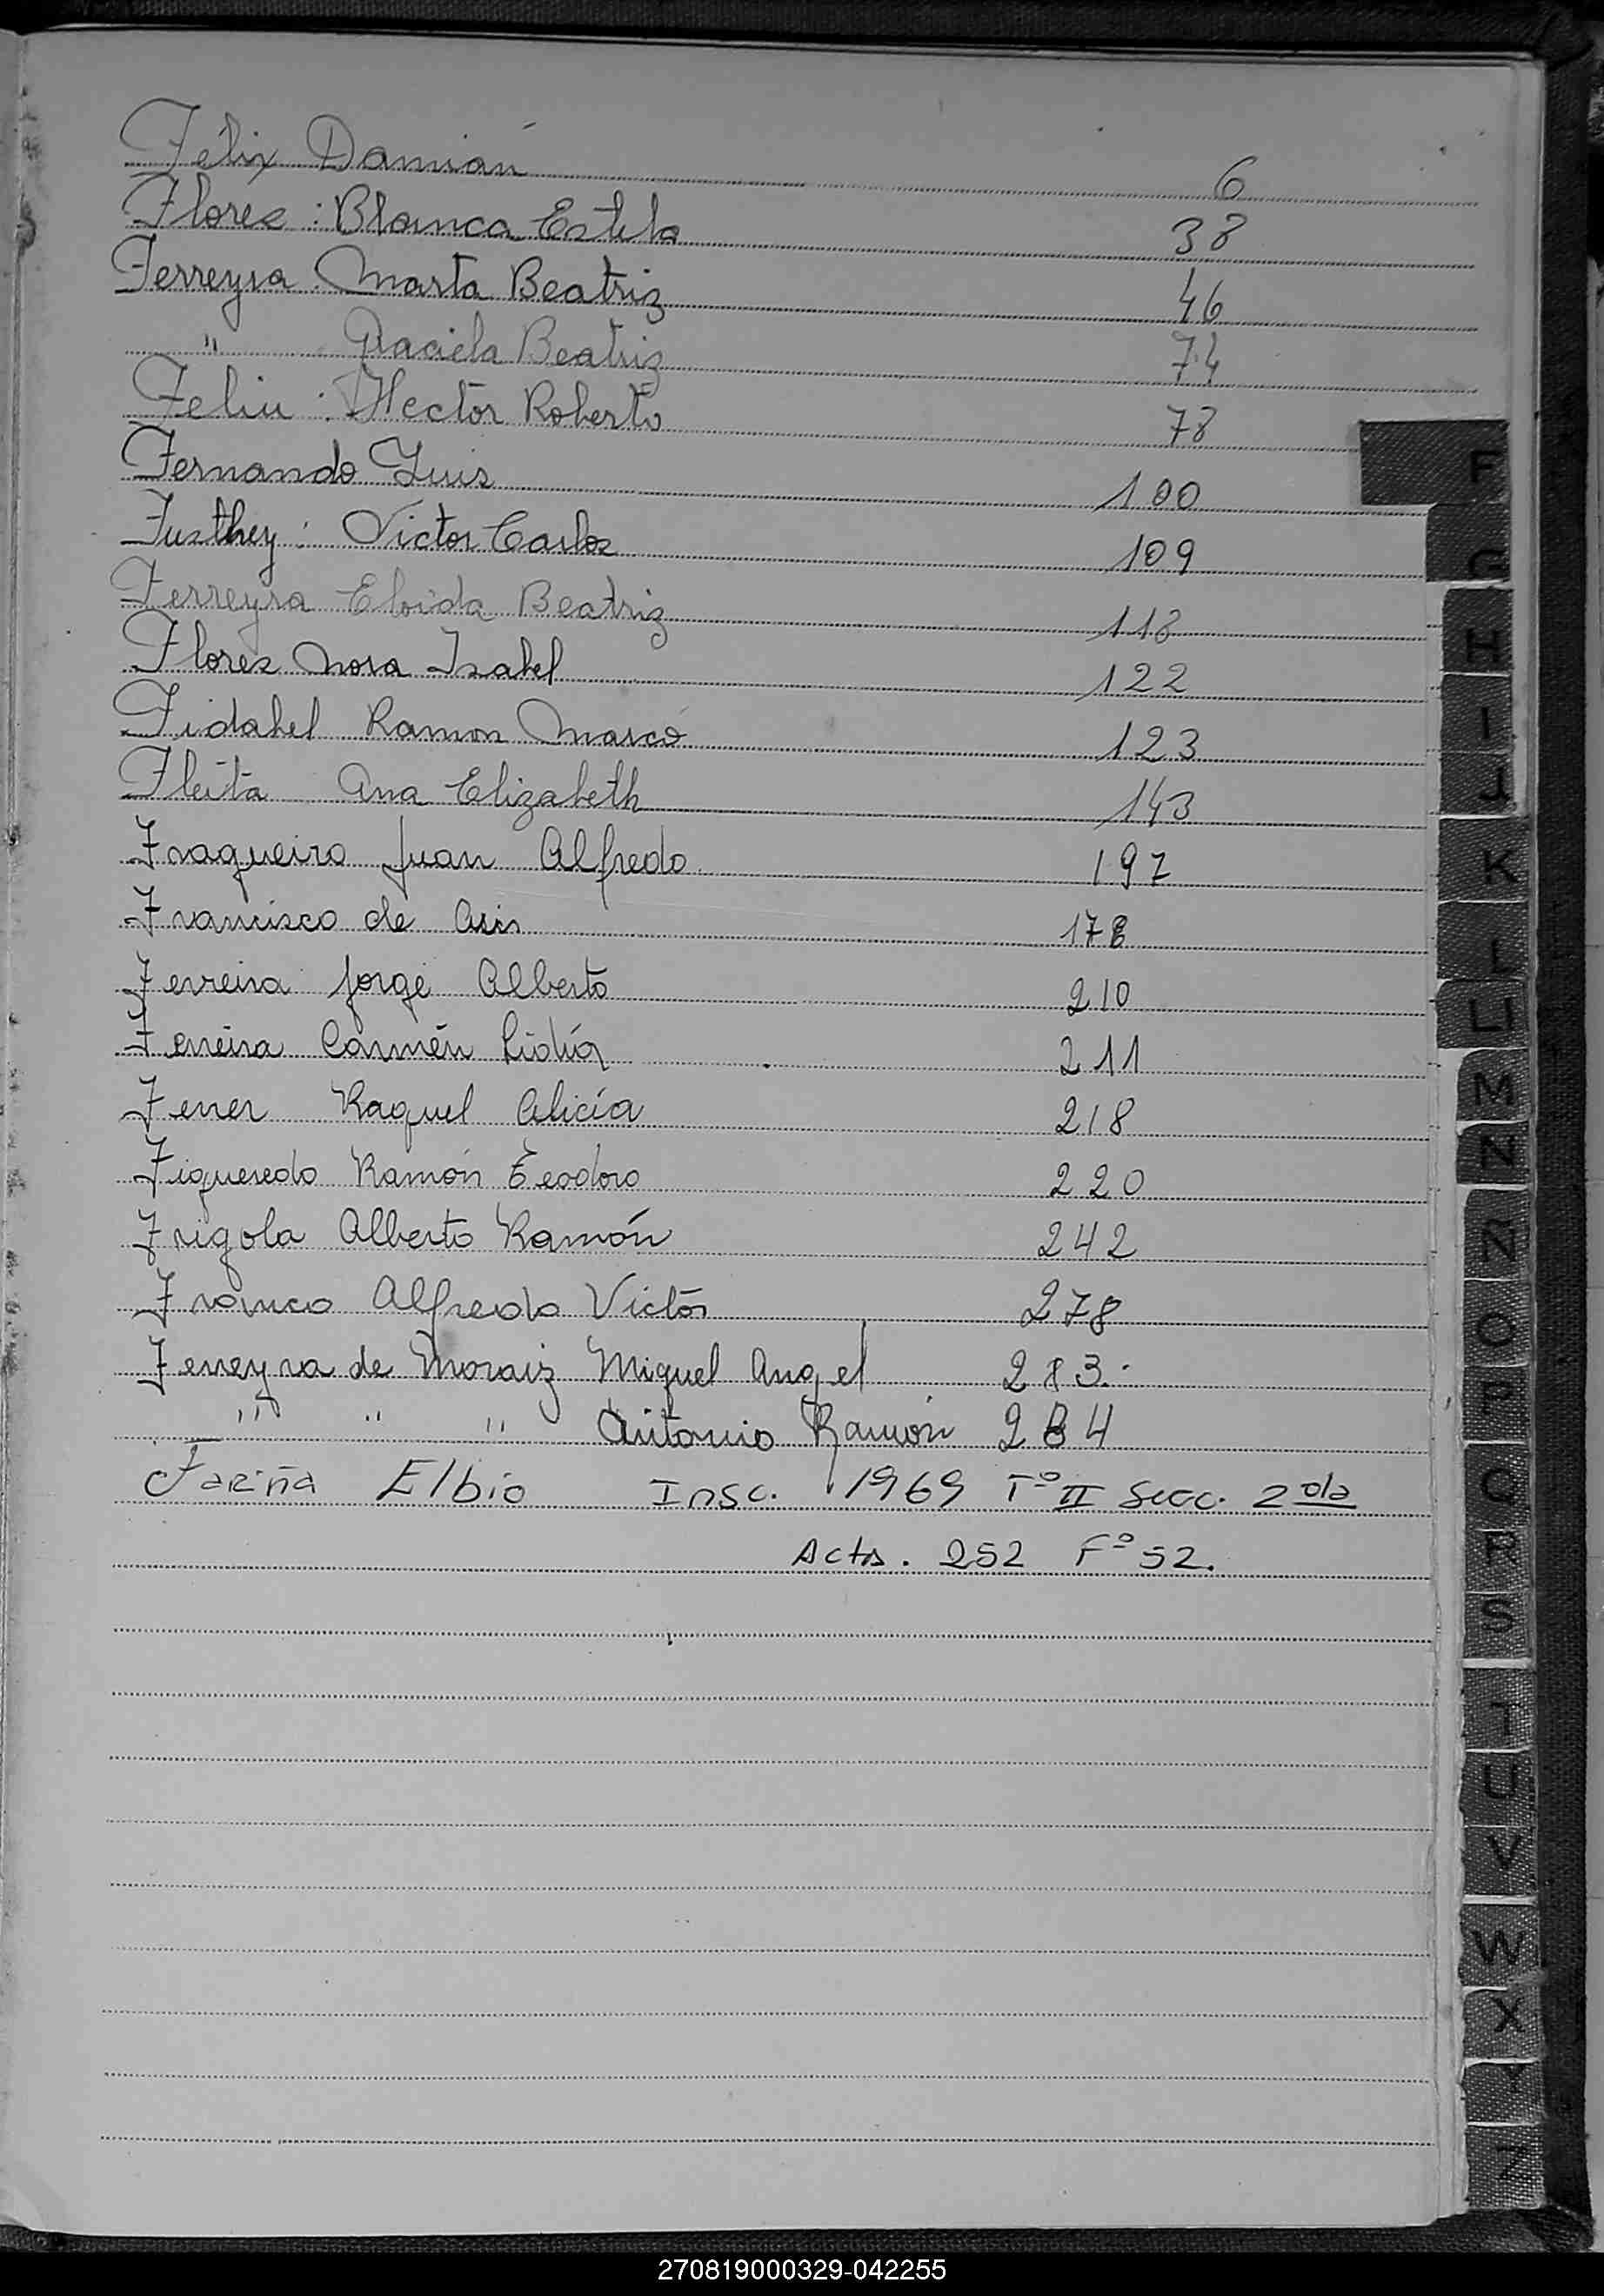 Félix Damián 6
Flores : Blanca Estela 38
Ferreyra Marta Beatriz 46
" Graciela Beatriz 74
Feliu : Hector Roberto 78
Fernando Luis 100
Fusthey : Victor Carlos 109
Ferreyra Eloida Beatriz 118
Flores Nora Isabel 122
Fidabel Ramon Marcó 123
Fleita Ana Elizabeth 143
Fraqueiro Juan Alfredo 197
Francisco de Asis 178
Ferreira Jorge Alberto 210
Ferreira Carmen Lidia 211
Ferrer Raquel Alicia 218
Figueredo Ramón Teodoro 220
Frigola Alberto Ramón 242
Franco Alfredo Victor 278
Ferreyra de Moraiz Miguel Angel 283.-
" " " Antonio Ramón 284
Fariña Elbio Insc. 1969 Tº II Secc. 2da
Acta. 252 Fº 52.
F
G
H
I
J
K
L
LL
M
N
Ñ
O
P
Q
R
S
T
U
V
W
X
Y
Z
270819000329-042255